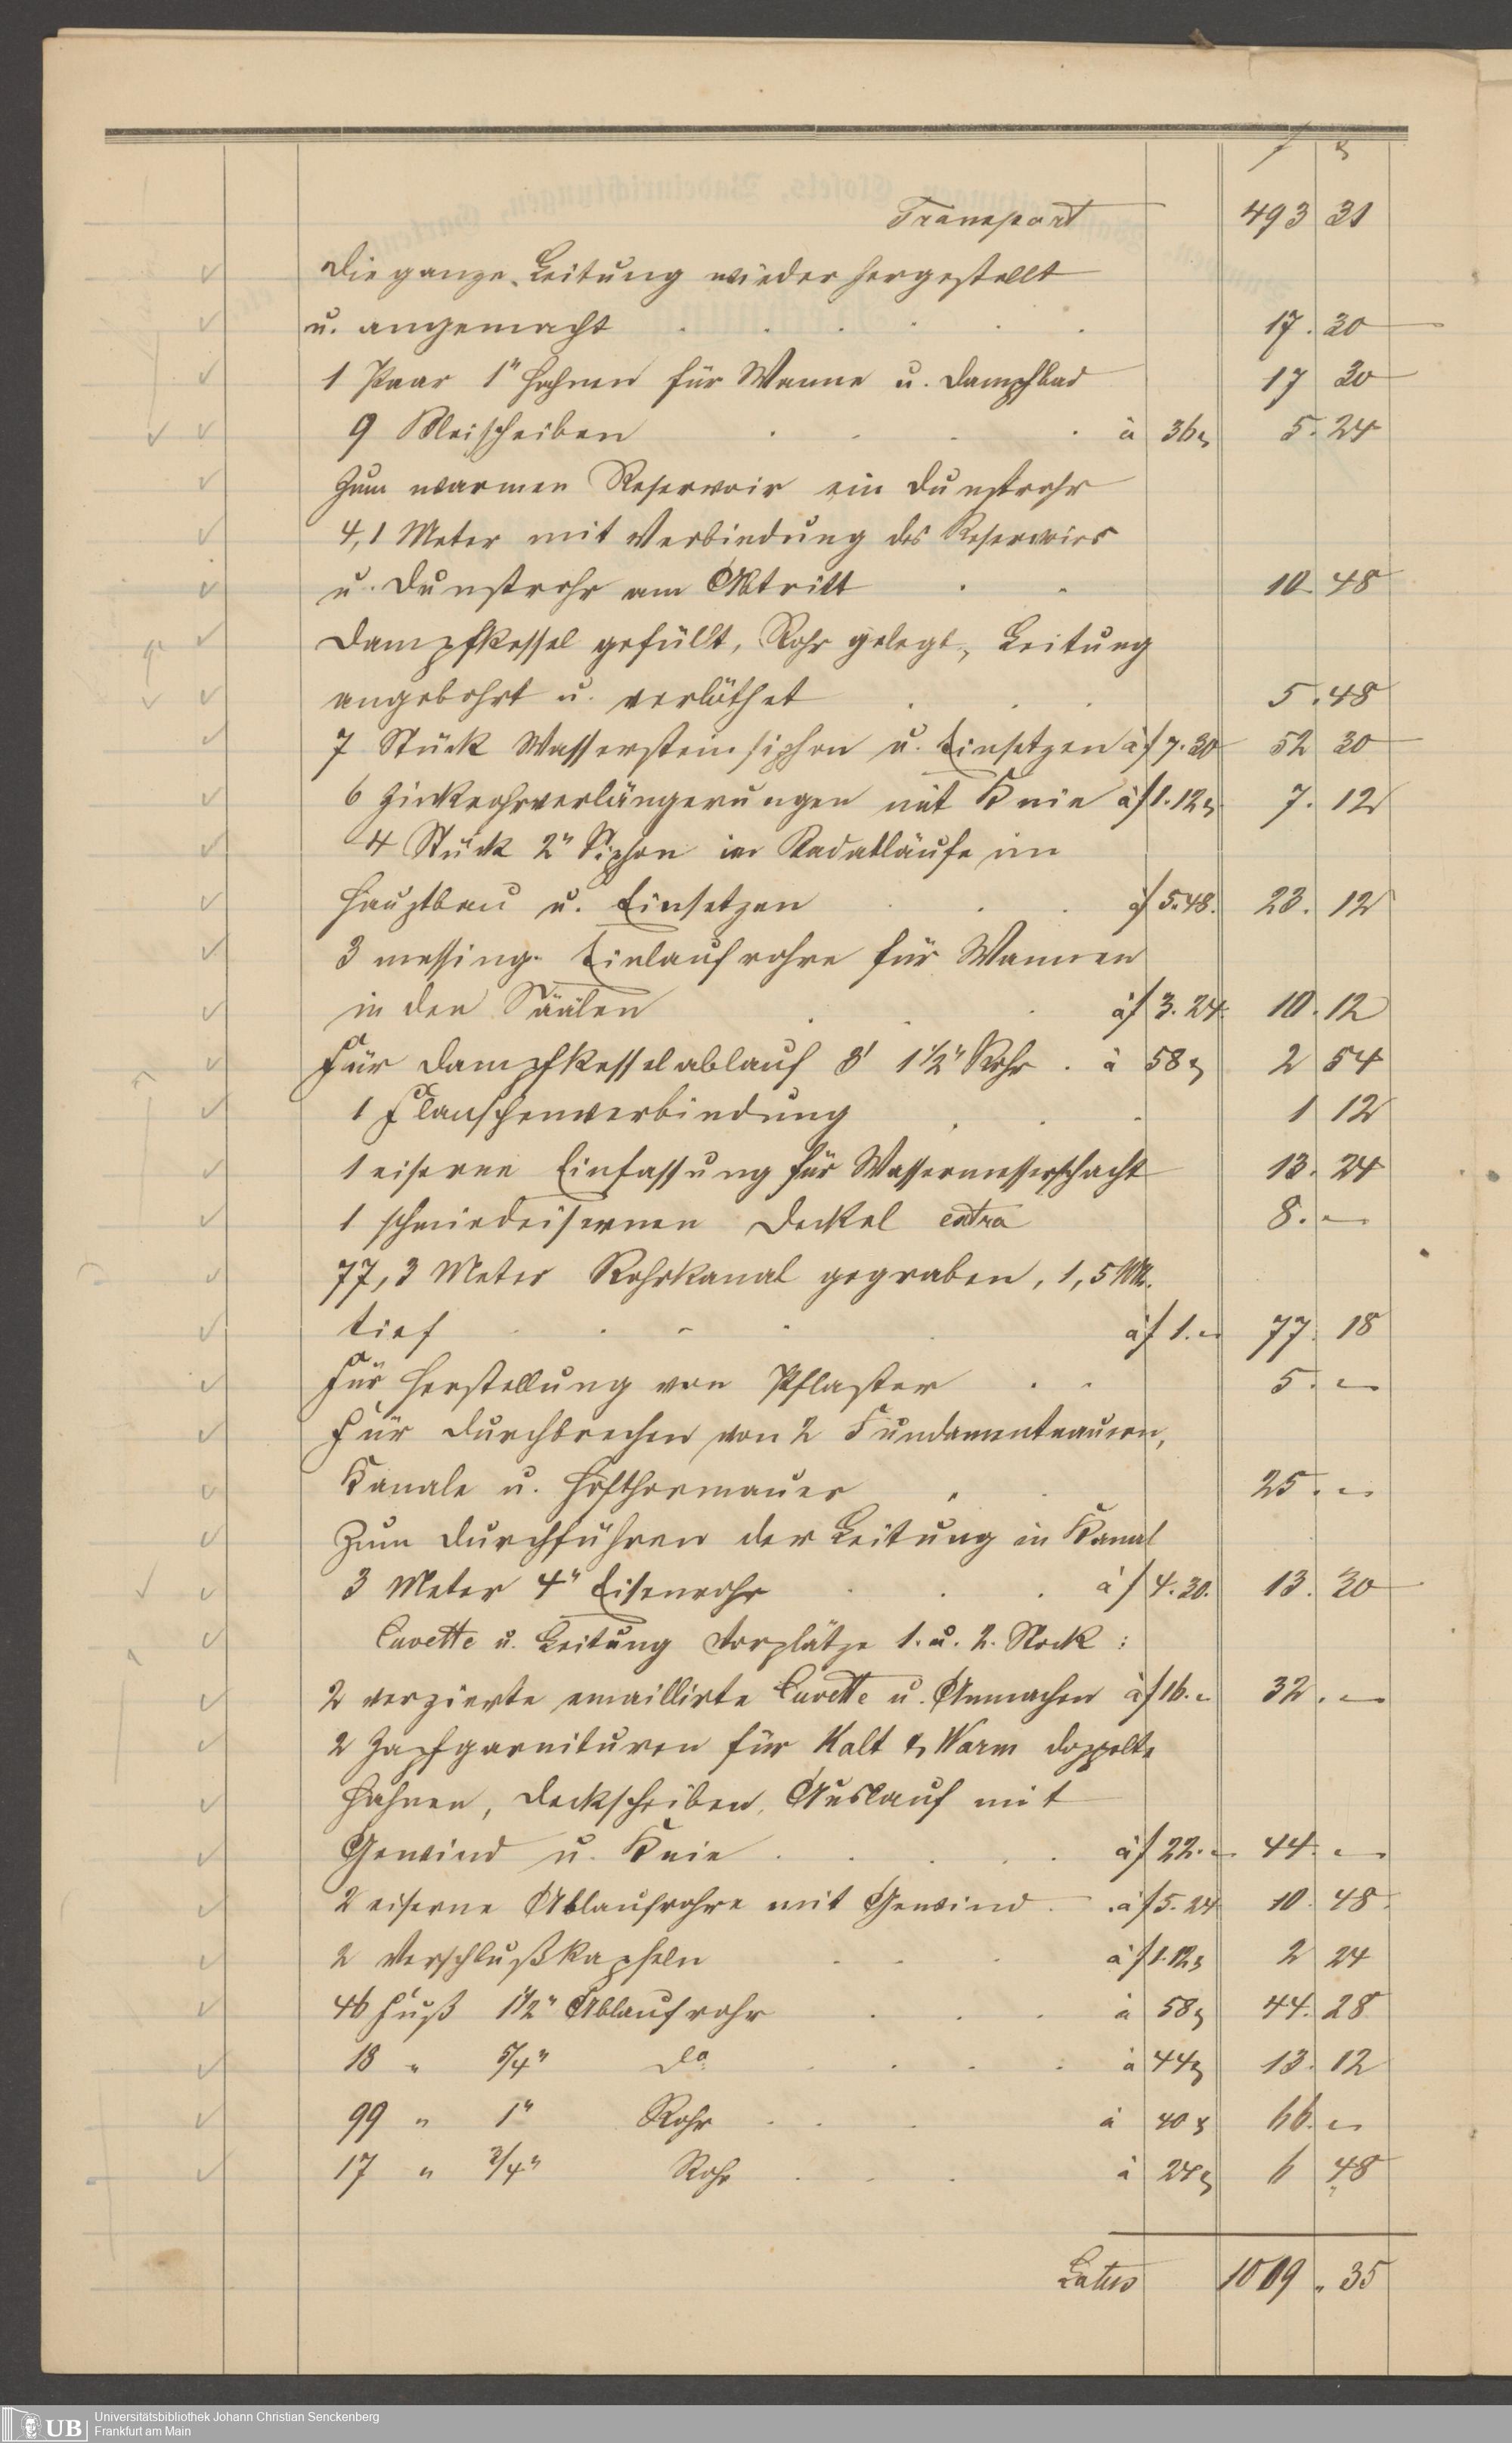 f x
Transport 493 31
Die ganze Leitung wieder hergestellt
u. angemacht . . . . . . 17. 30
1 Paar 1" Hahnen für Wanne u. Dampfbad 17 30
9 Bleischeiben . . . . à 36x 5. 24
Zum warmen Reservoir ein Dunstrohr
4,1 Meter mit Verbindung des Reservoirs
u. Dunstrohr am Abtritt . . 10. 48
Dampfkessel gefüllt, Rohr gelegt, Leitung
angebohrt u. verlöthet . . . 5. 48
7 Stück Wassersteinsiphon u. Einsetzen à f 7. 30 52 30
6 Zinkrohrverlängerungen mit Knie à f 1. 12x 7. 12
4 Stück 2" Siphon in Badabläufe im
Hauptbau u. Einsetzen . . . à f 5. 48. 23. 12
3 messing. Einlaufrohre für Wannen
in den Säälen . . . à f 3. 24. 10. 12
Für Dampfkesselablauf 3' 1 1/2" Rohr . à 58x 2 54
1 Flanschenverbindung . . . 1 12
1 eiserne Einfassung für Wassermesserschacht 13. 24
1 schmiedeisernen Deckel extra 8. –
77,3 Meter Rohrkanal gegraben, 1,5 M.
tief . . . . à f 1. – 77. 18
Für Herstellung von Pflaster . . 5. –
Für Durchbrechen von 2 Fundamentmauern,
Kanale u. Hofthormauer . . 25. –
Zum Durchführen der Leitung in Kanal
3 Meter 4" Eisenrohr . . . à f 4. 30. 13. 30
Cuvette u. Leitung Vorplätze 1. u. 2. Stock :
2 verzierte emaillirte Cuvette u. Anmachen à f 16. – 32. –
2 Zapfgarnituren für Kalt & Warm doppelte
Hahnen, Deckscheiben, Auslauf mit
Gewind u. Knie . . . . . à f 22. – 44. –
2 eiserne Ablaufrohre mit Gewind . . à f 5. 24 10. 48.
2 Verschlußkapseln . . . à f 1. 12x 2 24
46 Fuß 1 1/2" Ablaufrohr . . . à 58x 44. 28
18 " 5/4" do . . . . à 44x 13. 12
99 " 1" Rohr . . . à 40x 66. –
17 " 3/4" Rohr . . . à 24x 6 48
Latus 1009. 35
UB Universitätsbibliothek Johann Christian Senckenberg
Frankfurt am Main